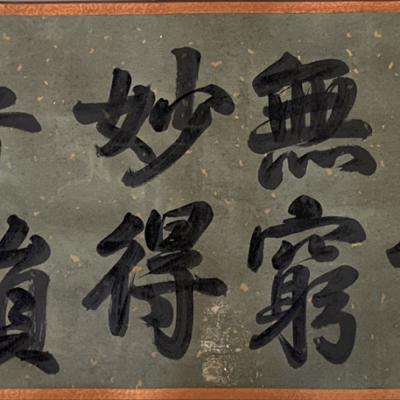 無窮
妙得